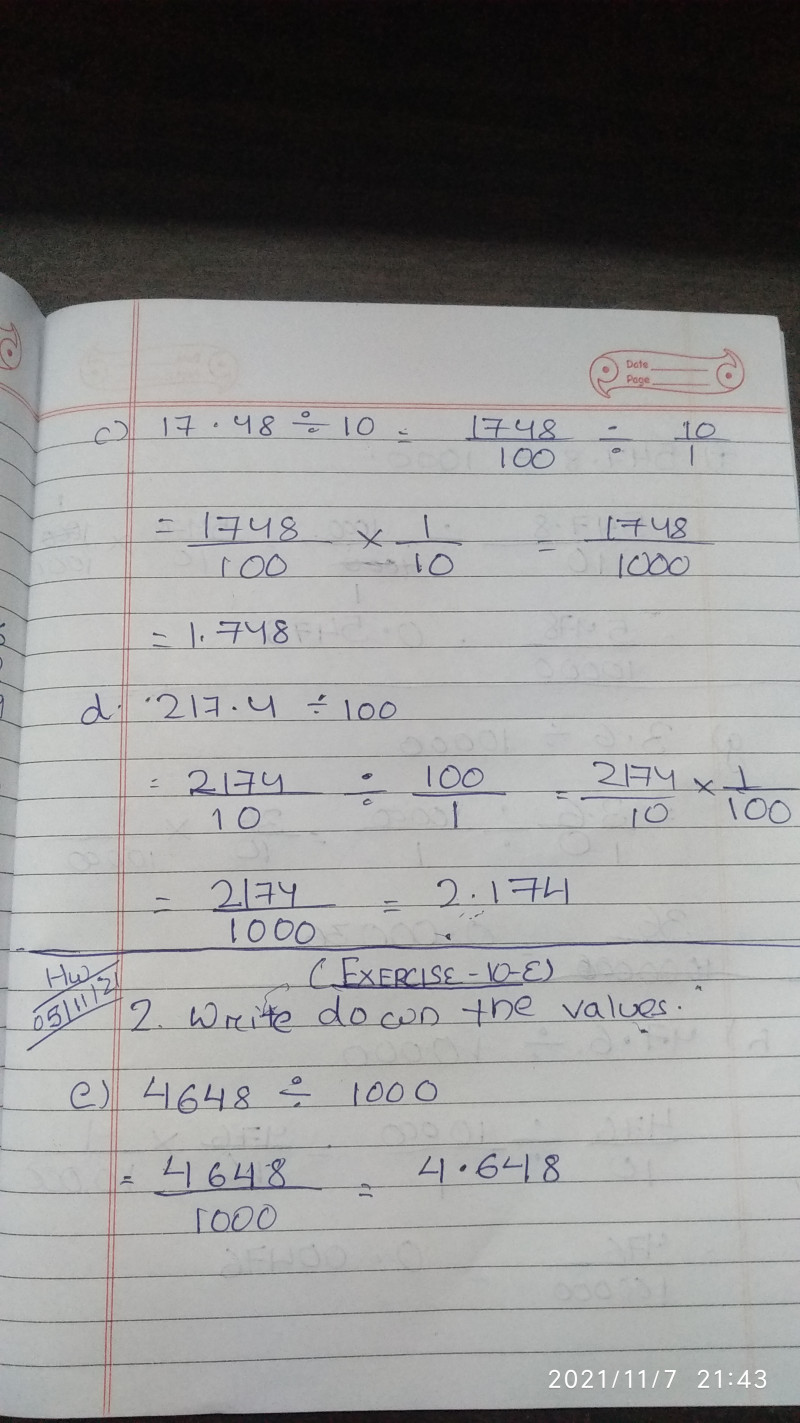 Date
Page
c) 17.48 ÷ 10 = 1748/100 ÷ 10/1
= 1748/100 × 1/10 = 1748/1000
= 1.748
d. 217.4 ÷ 100
= 2174/10 ÷ 100/1 = 2174/10 × 1/100
= 2174/1000 = 2.174
HW
05/11/21
(EXERCISE-10-E)
2. Write down the values.
e) 4648 ÷ 1000
= 4648/1000 = 4.648
2021/11/7 21:43